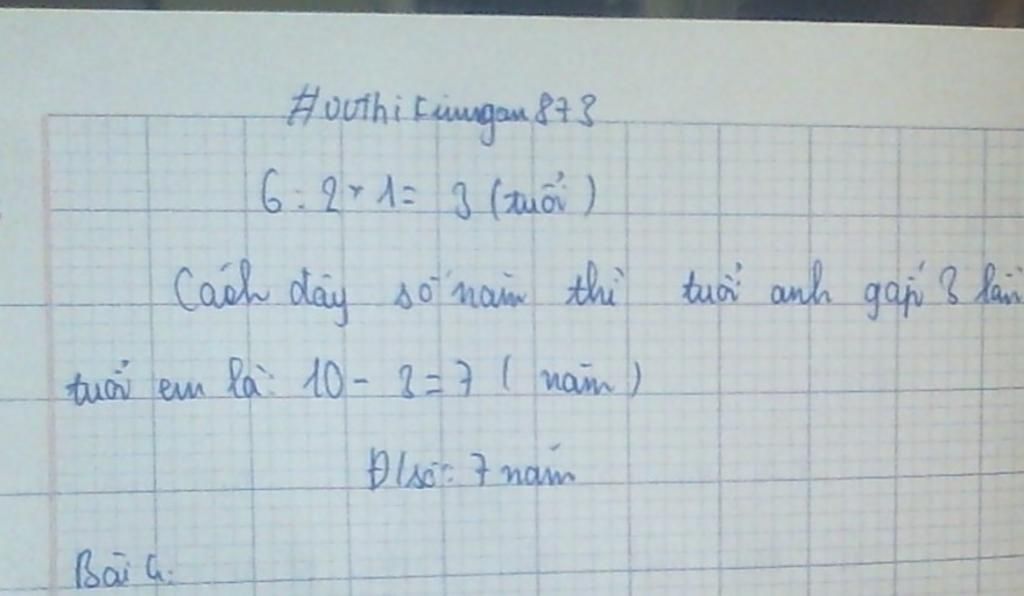 #vuthikimngan873
6 : 2 × 1 = 3 (tuổi)
Cách đây số năm thì tuổi anh gấp 3 lần
tuổi em là: 10 - 3 = 7 ( năm )
Đ/số: 7 năm
Bài 4: